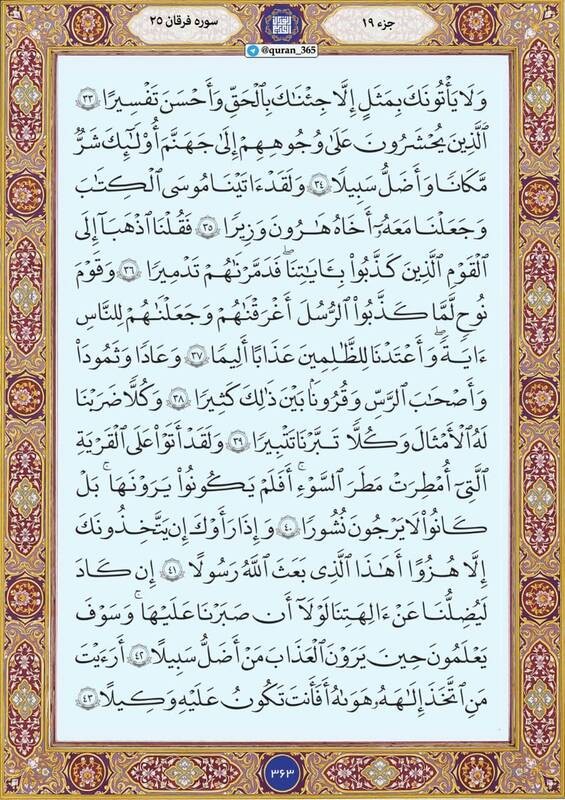 جزء ۱۹
سوره فرقان ۲۵
@quran_365
وَلَا يَأْتُونَكَ بِمَثَلٍ إِلَّا جِئْنَاكَ بِالْحَقِّ وَأَحْسَنَ تَفْسِيرًا ﴿۳۳﴾
الَّذِينَ يُحْشَرُونَ عَلَىٰ وُجُوهِهِمْ إِلَىٰ جَهَنَّمَ أُوْلَٰئِكَ شَرٌّ
مَّكَانًا وَأَضَلُّ سَبِيلًا ﴿۳۴﴾ وَلَقَدْ ءَاتَيْنَا مُوسَى الْكِتَابَ
وَجَعَلْنَا مَعَهُۥٓ أَخَاهُ هَارُونَ وَزِيرًا ﴿۳۵﴾ فَقُلْنَا اذْهَبَآ إِلَى
الْقَوْمِ الَّذِينَ كَذَّبُواْ بِـَٔايَاتِنَاۖ فَدَمَّرْنَاهُمْ تَدْمِيرًا ﴿۳۶﴾ وَقَوْمَ
نُوحٍ لَّمَّا كَذَّبُواْ الرُّسُلَ أَغْرَقْنَاهُمْ وَجَعَلْنَاهُمْ لِلنَّاسِ
ءَايَةًۖ وَأَعْتَدْنَا لِلظَّالِمِينَ عَذَابًا أَلِيمًا ﴿۳۷﴾ وَعَادًا وَثَمُودَاْ
وَأَصْحَابَ الرَّسِّ وَقُرُونًا بَيْنَ ذَٰلِكَ كَثِيرًا ﴿۳۸﴾ وَكُلًّا ضَرَبْنَا
لَهُ الْأَمْثَالَ وَكُلًّا تَبَّرْنَا تَتْبِيرًا ﴿۳۹﴾ وَلَقَدْ أَتَوْاْ عَلَى الْقَرْيَةِ
الَّتِيٓ أُمْطِرَتْ مَطَرَ السَّوْءِۚ أَفَلَمْ يَكُونُواْ يَرَوْنَهَاۚ بَلْ
كَانُواْ لَا يَرْجُونَ نُشُورًا ﴿۴۰﴾ وَإِذَا رَأَوْكَ إِن يَتَّخِذُونَكَ
إِلَّا هُزُوًا أَهَٰذَا الَّذِي بَعَثَ اللَّهُ رَسُولًا ﴿۴۱﴾ إِن كَادَ
لَيُضِلُّنَا عَنْ ءَالِهَتِنَا لَوْلَآ أَن صَبَرْنَا عَلَيْهَاۚ وَسَوْفَ
يَعْلَمُونَ حِينَ يَرَوْنَ الْعَذَابَ مَنْ أَضَلُّ سَبِيلًا ﴿۴۲﴾ أَرَءَيْتَ
مَنِ اتَّخَذَ إِلَٰهَهُۥ هَوَىٰهُ أَفَأَنتَ تَكُونُ عَلَيْهِ وَكِيلًا ﴿۴۳﴾
۳۶۳